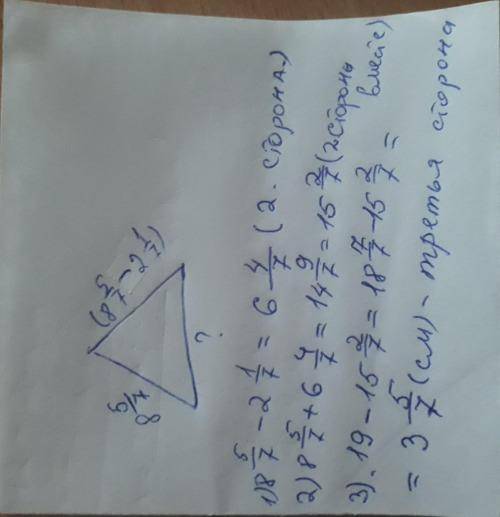 8 5/7
(8 5/7 - 2 1/7)
?
1) 8 5/7 - 2 1/7 = 6 4/7 (2. сторона)
2) 8 5/7 + 6 4/7 = 14 9/7 = 15 2/7 (2 стороны
вместе)
3). 19 - 15 2/7 = 18 7/7 - 15 2/7 =
= 3 5/7 (см) - третья сторона